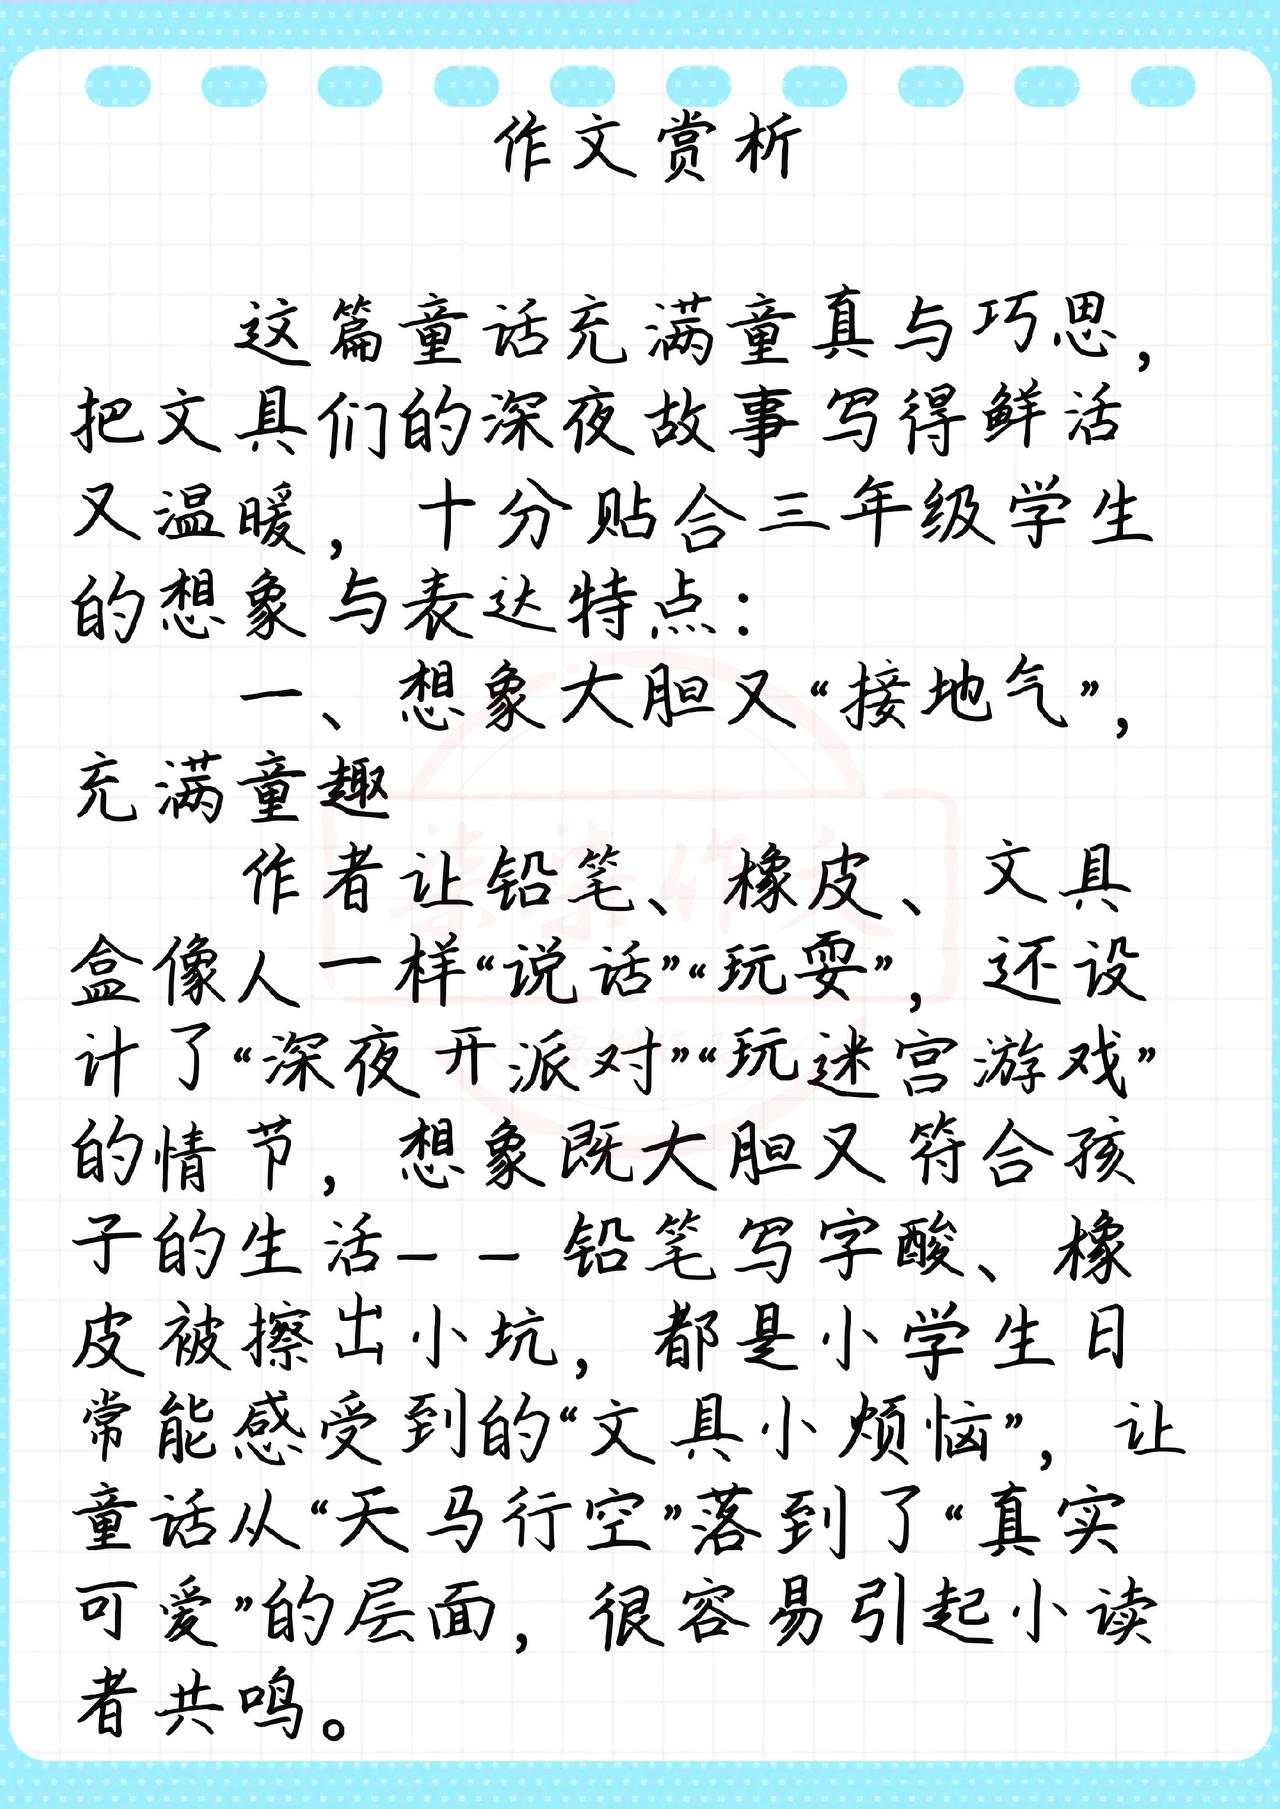 作文赏析
这篇童话充满童真与巧思，
把文具们的深夜故事写得鲜活
又温暖，十分贴合三年级学生
的想象与表达特点：
一、想象大胆又“接地气”，
充满童趣
作者让铅笔、橡皮、文具
盒像人一样“说话”“玩耍”，还设
计了“深夜开派对”“玩迷宫游戏”
的情节，想象既大胆又符合孩
子的生活——铅笔写字酸、橡
皮被擦出小坑，都是小学生日
常能感受到的“文具小烦恼”，让
童话从“天马行空”落到了“真实
可爱”的层面，很容易引起小读
者共鸣。